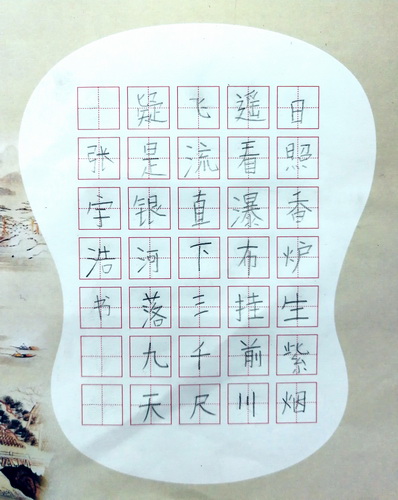 日照香炉生紫烟
遥看瀑布挂前川
飞流直下三千尺
疑是银河落九天
张宇浩书